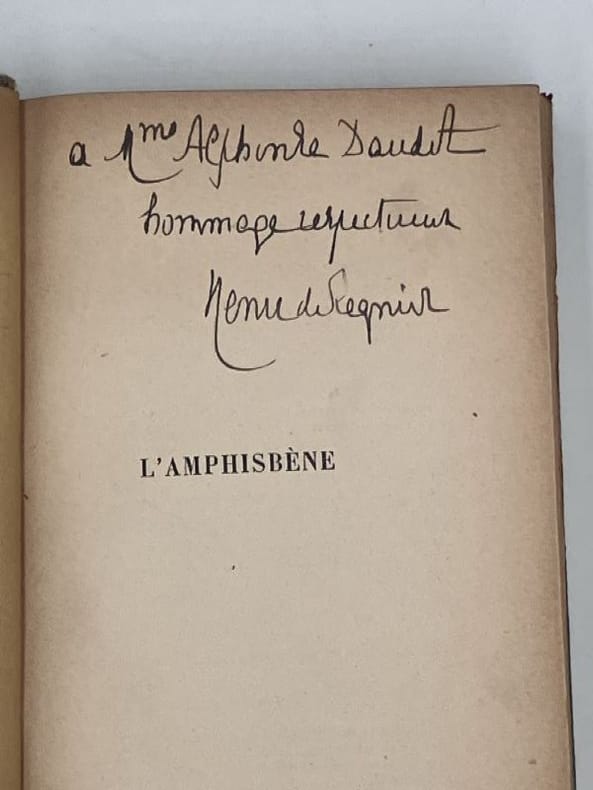 a Mme Alphonse Daudet
hommage respectueux
Henri de Regnier
L'AMPHISBÈNE